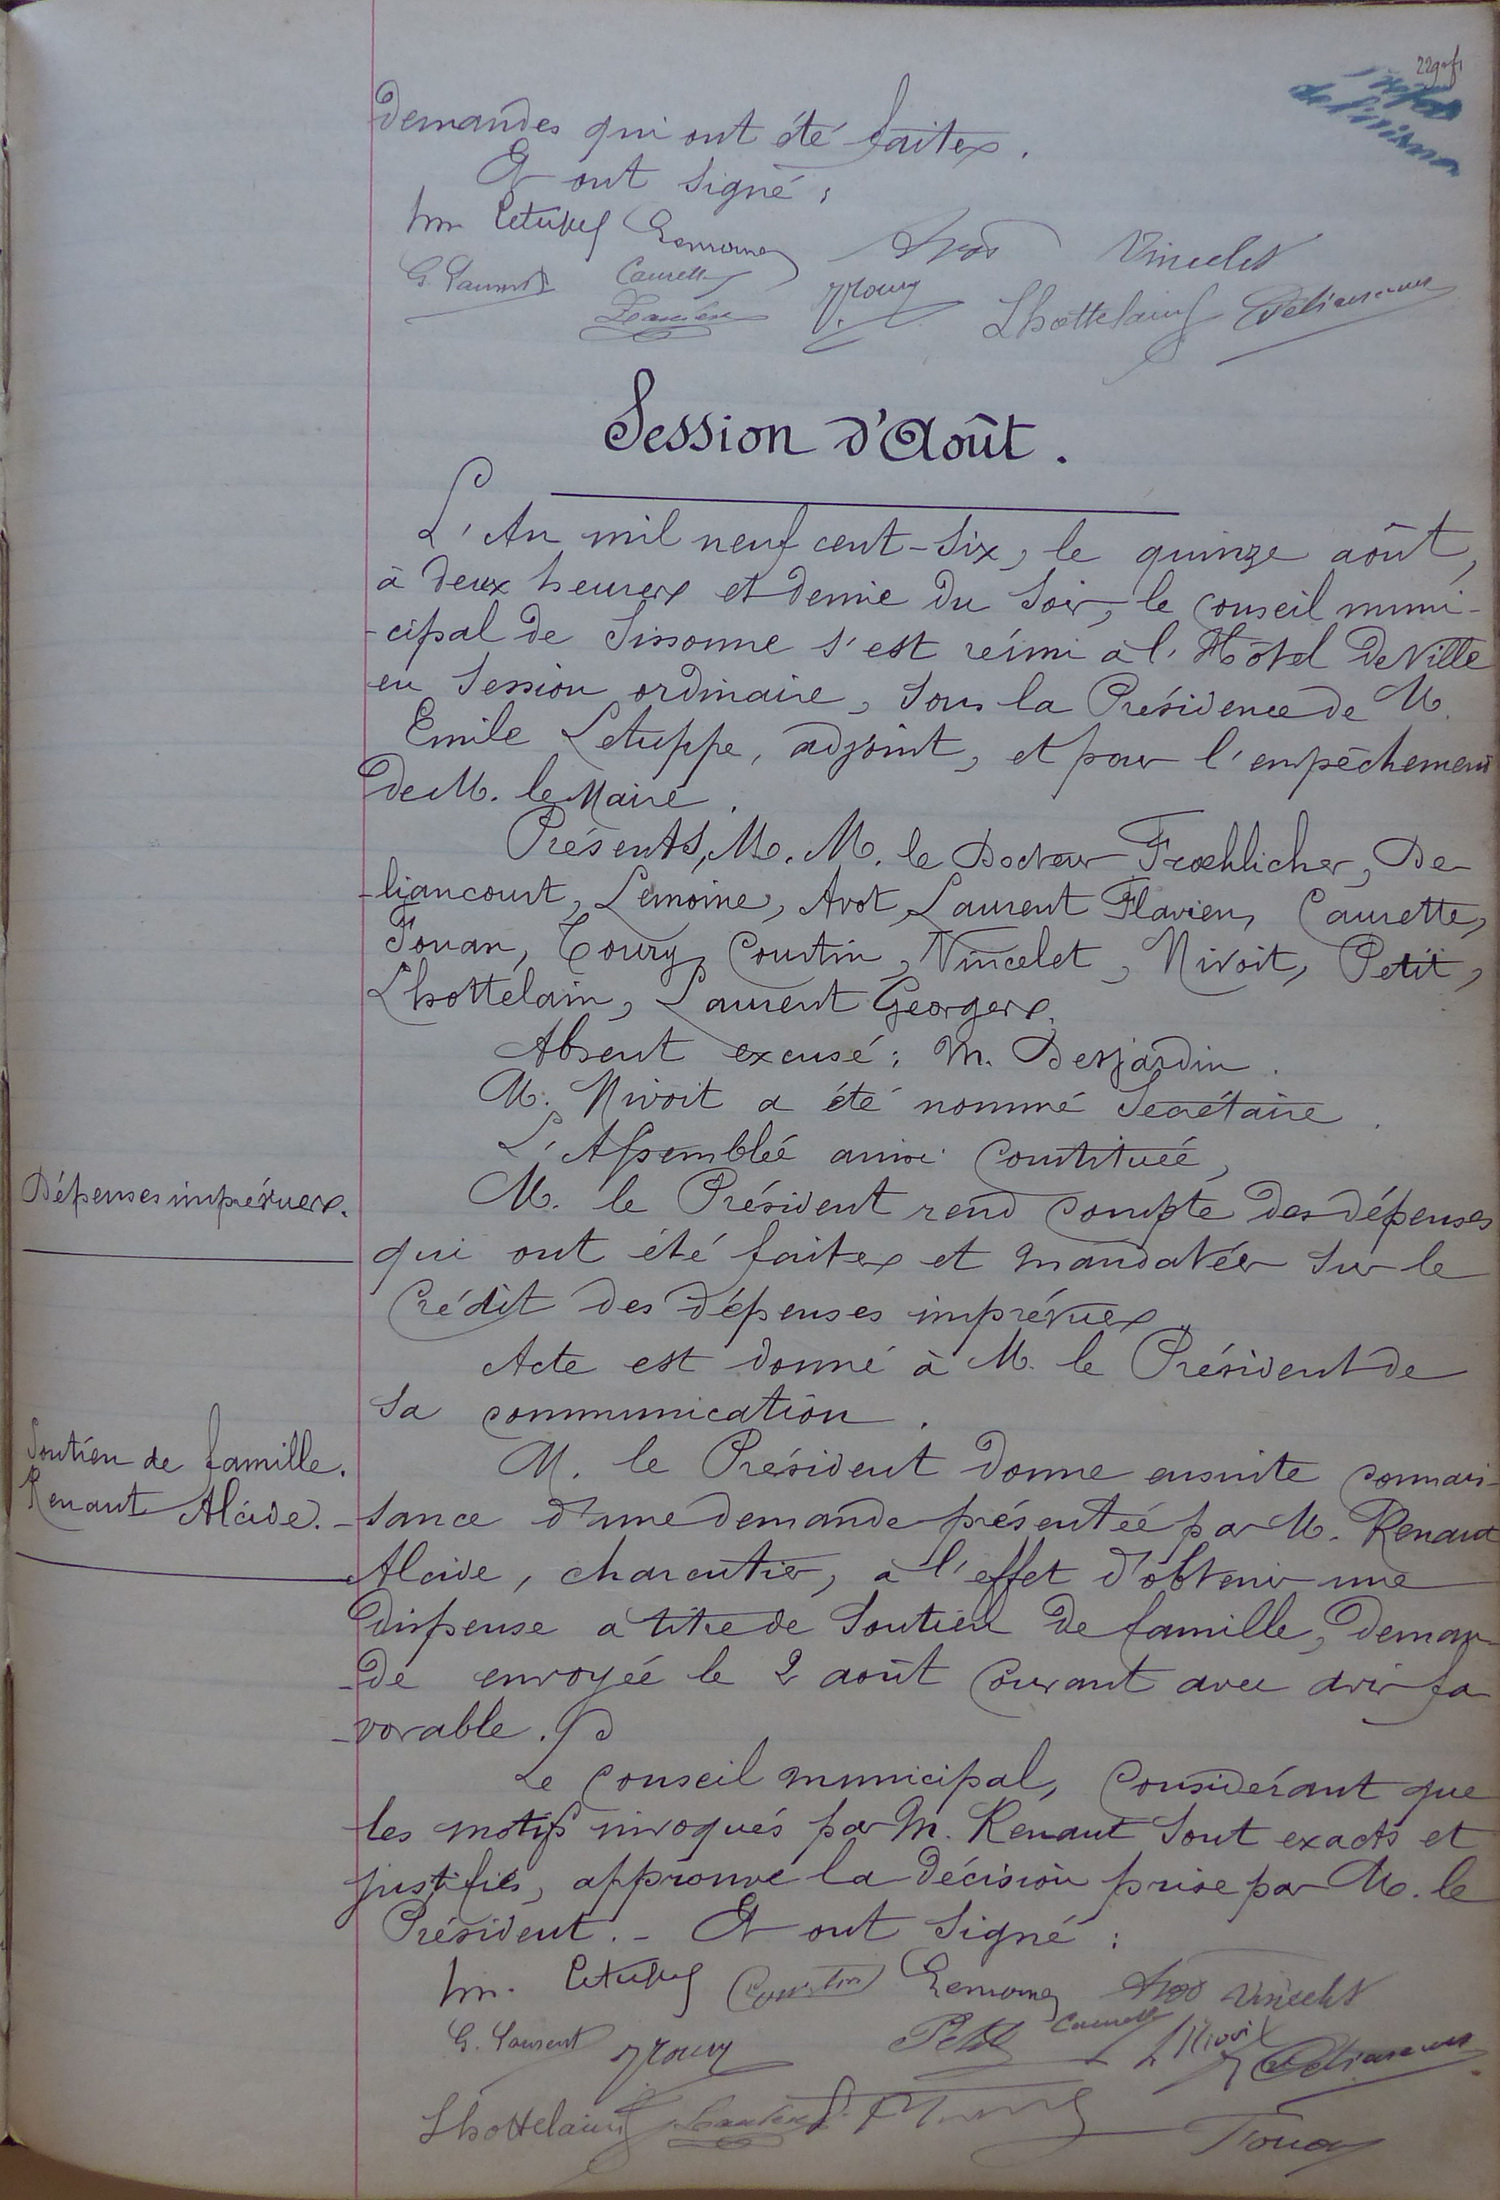 demandes qui ont été faites.
Et ont signé :
Letuppe Lemoine Avot Vincelet
G. Laurent Caurette Toury Lhottelain Deliancourt
Session d'Août.
L'An mil neuf cent-six, le quinze août,
à deux heures et demie du soir, le conseil muni-
-cipal de Sissonne s'est réuni à l'Hôtel de Ville
en session ordinaire, sous la Présidence de M.
Emile Letuppe, adjoint, et pour l'empêchement
de M. le Maire.
Présents, M. M. le Docteur Froehlicher, De-
-liancourt, Lemoine, Avot, Laurent Flavien, Caurette,
Fouan, Toury, Courtin, Vincelet, Nivoit, Petit,
Lhottelain, Laurent Georges.
Absent excusé : M. Desjardin.
M. Nivoit a été nommé Secrétaire.
L'Assemblée ainsi constituée,
Dépenses imprévues.
M. le Président rend compte des dépenses
qui ont été faites et mandatées sur le
crédit des dépenses imprévues.
Acte est donné à M. le Président de
sa communication.
Soutien de famille.
Renaut Alcide.
M. le Président donne ensuite connais-
-sance d'une demande présentée par M. Renaut
Alcide, charcutier, à l'effet d'obtenir une
dispense à titre de soutien de famille, deman-
-de envoyée le 2 août courant avec avis fa
-vorable.
Le Conseil municipal, considérant que
les motifs invoqués par M. Renaut sont exacts et
justifiés, approuve la décision prise par M. le
Président. - Et ont signé :
Letuppe Courtin Lemoine Avot Vincelet
G. Laurent Toury Petit Caurette Nivoit Deliancourt
Lhottelain Fouan